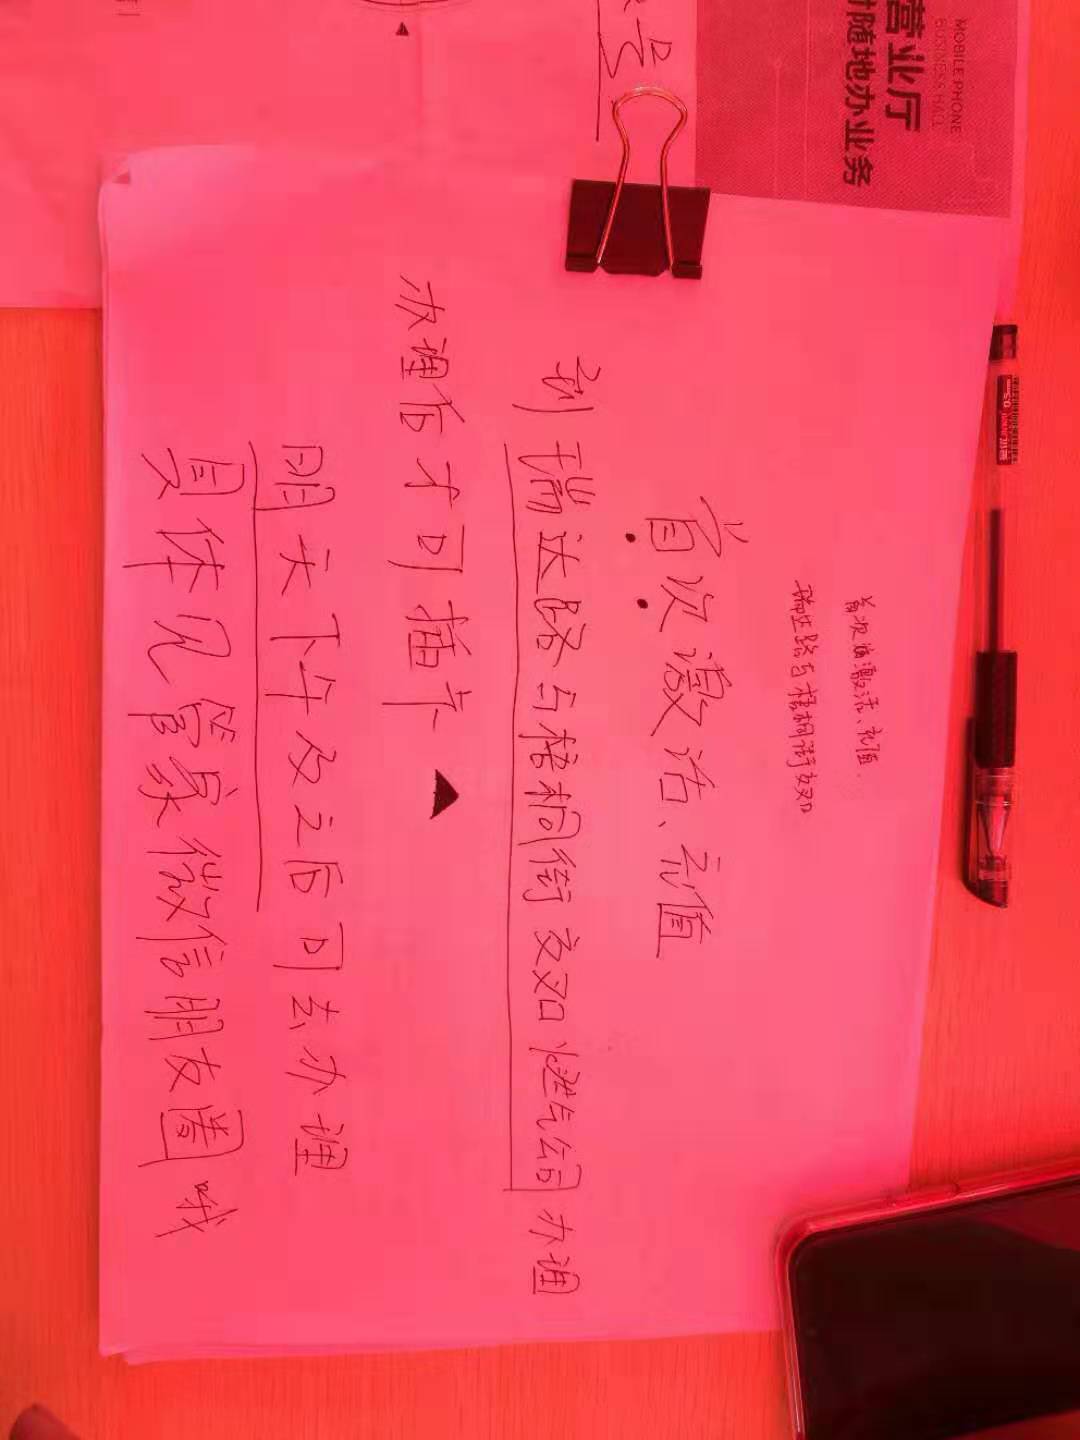 营业厅
时随地办业务
MOBILE PHONE
BUSINESS HALL
首次 激活、充值
瑞达路与梧桐街交叉口
首次激活、充值
到瑞达路与梧桐街交叉口燃气公司办理
办理后才可插卡
明天下午及之后可去办理
具体见管家微信朋友圈哦